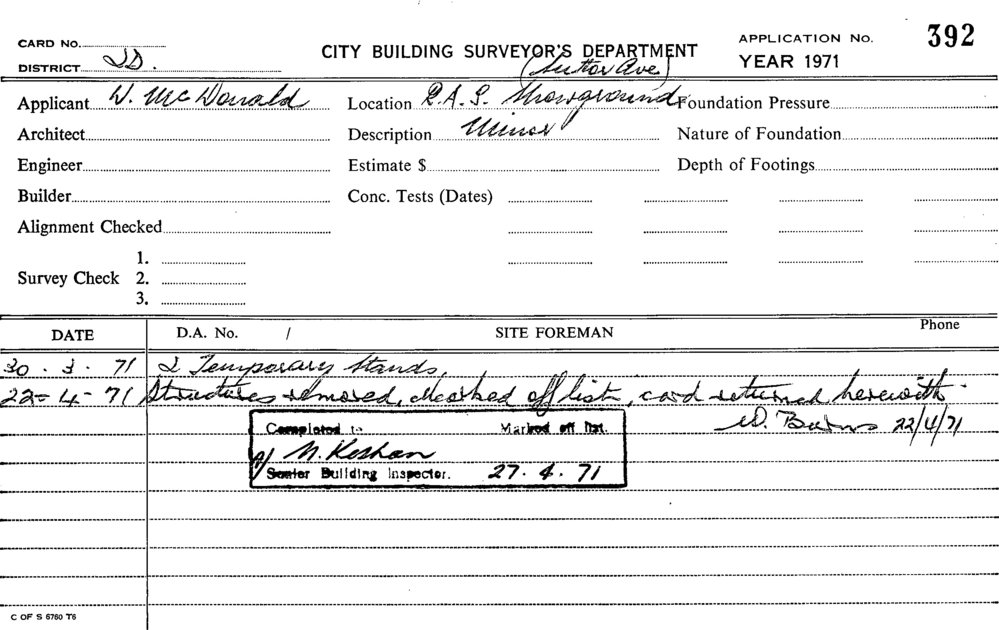 CARD No.
DISTRICT
CITY BUILDING SURVEYOR'S DEPARTMENT
APPLICATION No. 392
YEAR 1971
(Suttor Ave)
Applicant W. McDonald Location R.A.S. Showground Foundation Pressure
Architect Description Minor Nature of Foundation
Engineer Estimate $ Depth of Footings
Builder Conc. Tests (Dates)
Alignment Checked
1.
Survey Check 2.
3.
DATE D.A. No. / SITE FOREMAN Phone
30 . 3 . 71 2 Temporary Stands.
22 - 4 - 71 Structures removed, marked off list, card returned herewith.
W. Burns 22/4/71
Completed to Marked off list.
Senior Building Inspector. 27 . 4 . 71
C OF S 6760 T6